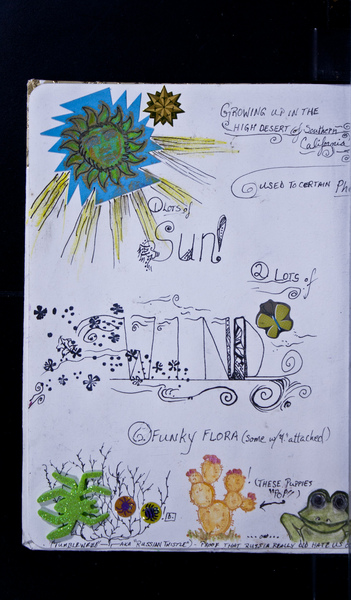 GROWING UP IN THE
HIGH DESERT of Southern
California
USED TO CERTAIN Ph
① LOTS of
Sun!
② LOTS of
WIND
③ FUNKY FLORA (some w/ attached)
(THESE PUPPIES
"POP"!)
TUMBLEWEED (AKA "RUSSIAN THISTLE") - PROOF THAT RUSSIA REALLY DID HATE US